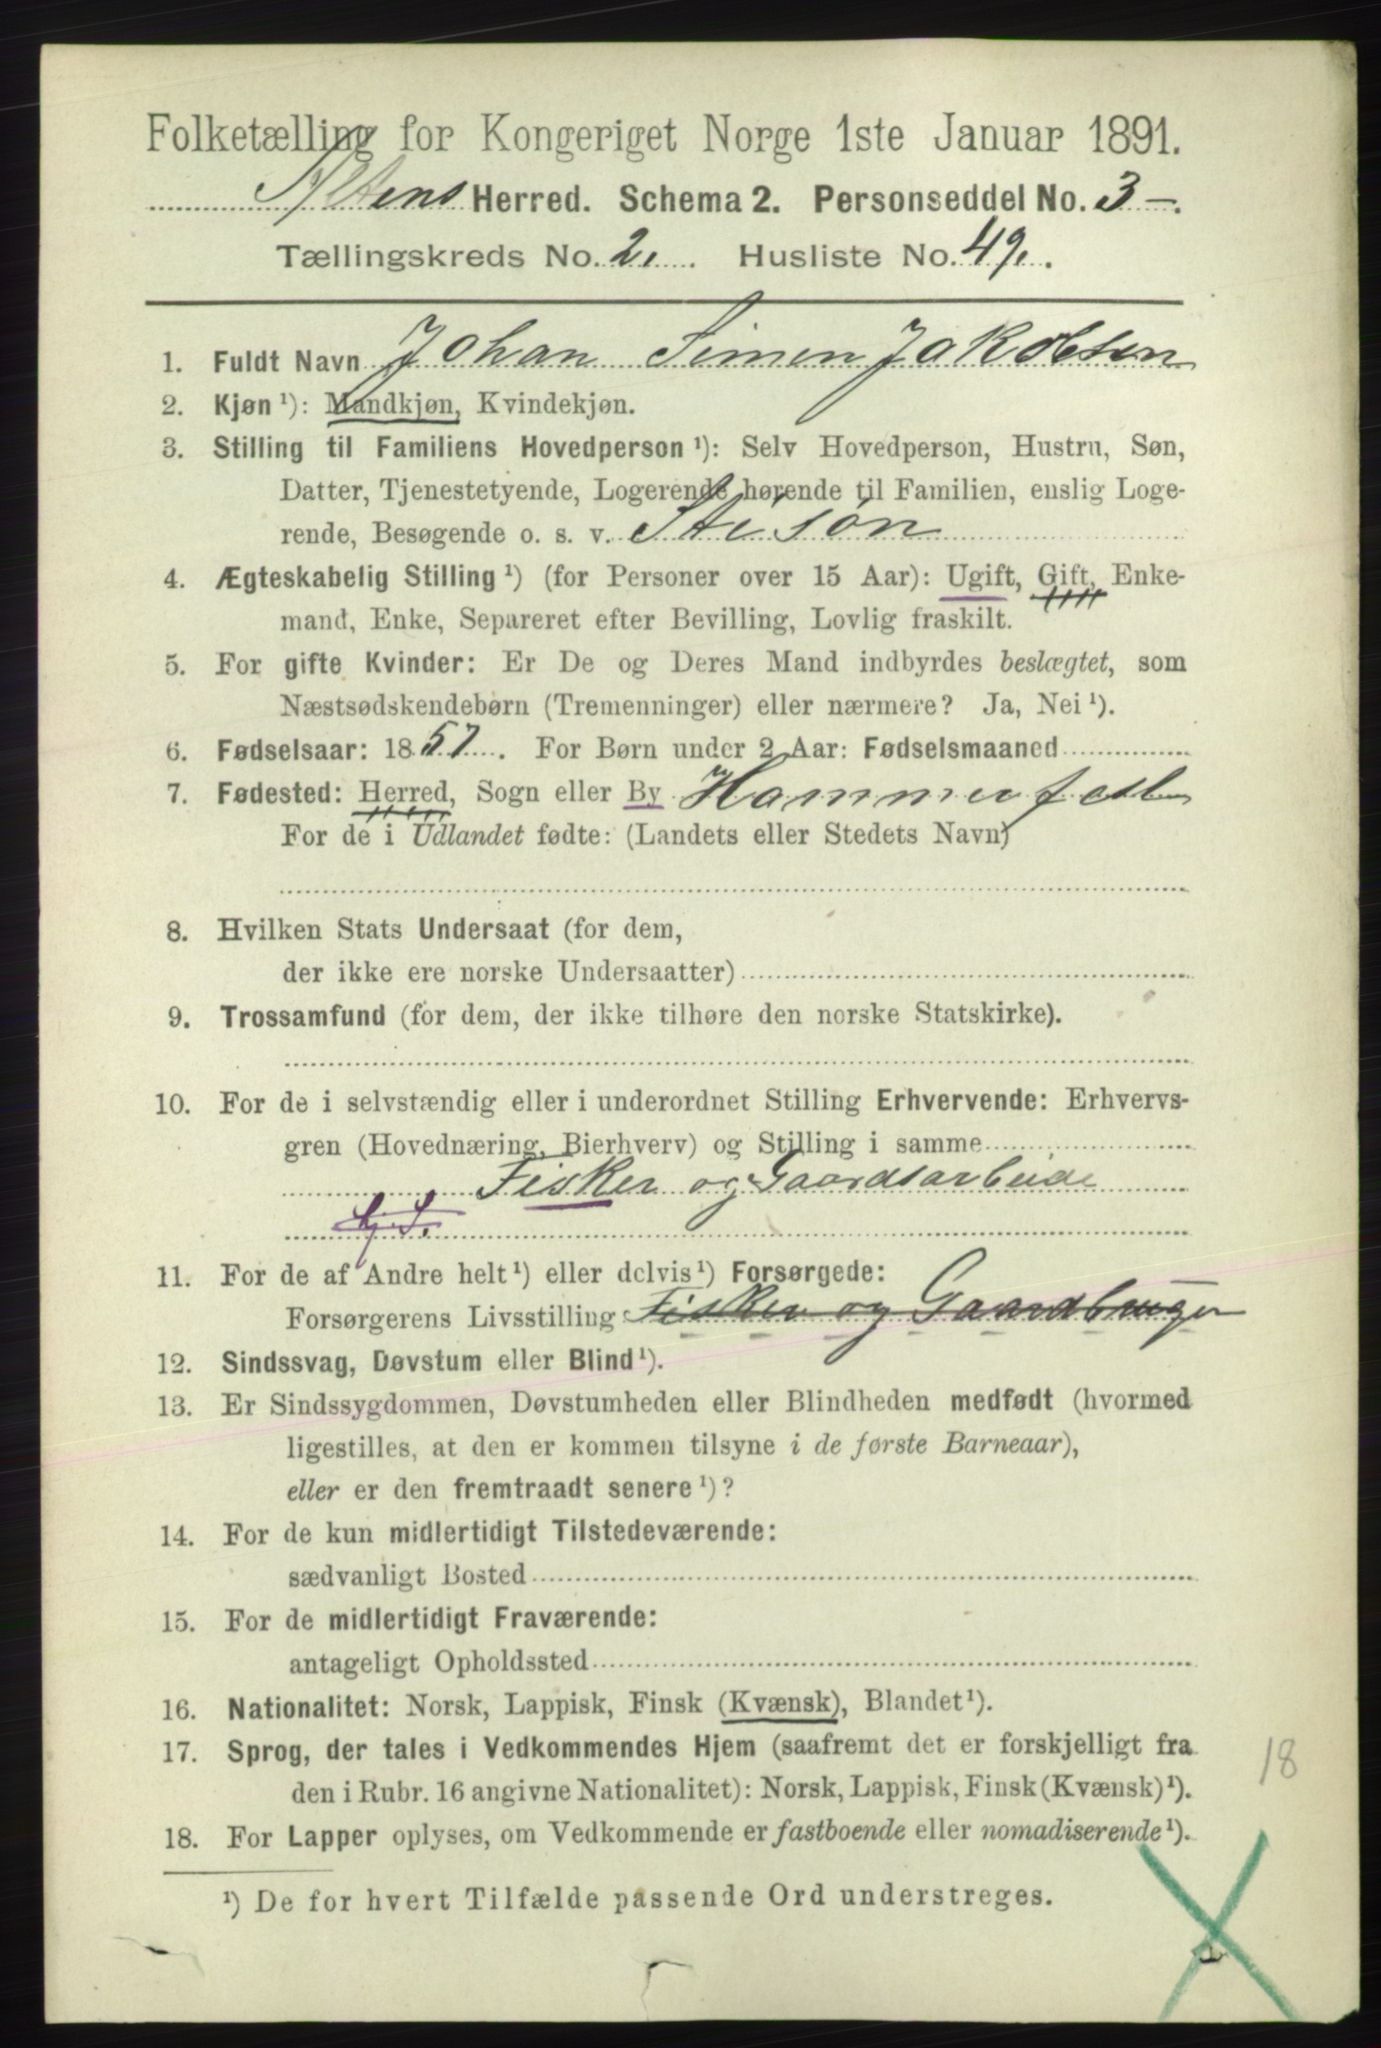 Folketælling for Kongeriget Norge 1ste Januar 1891.
Altens Herred. Schema 2. Personseddel No. 3 —.
Tællingskreds No. 2. Husliste No. 49.
1. Fuldt Navn Johan Simen Jakobsen
2. Kjøn ¹): Mandkjøn, Kvindekjøn.
3. Stilling til Familiens Hovedperson ¹): Selv Hovedperson, Hustru, Søn,
Datter, Tjenestetyende, Logerende hørende til Familien, enslig Loge-
rende, Besøgende o. s. v. Stisøn
4. Ægteskabelig Stilling ¹) (for Personer over 15 Aar): Ugift, Gift, Enke-
mand, Enke, Separeret efter Bevilling, Lovlig fraskilt.
5. For gifte Kvinder: Er De og Deres Mand indbyrdes beslægtet, som
Næstsødskendebørn (Tremenninger) eller nærmere? Ja, Nei ¹).
6. Fødselsaar: 1857. For Børn under 2 Aar: Fødselsmaaned
7. Fødested: Herred, Sogn eller By Hammerfest
For de i Udlandet fødte: (Landets eller Stedets Navn)
8. Hvilken Stats Undersaat (for dem,
der ikke ere norske Undersaatter)
9. Trossamfund (for dem, der ikke tilhøre den norske Statskirke).
10. For de i selvstændig eller i underordnet Stilling Erhvervende: Erhvervs-
gren (Hovednæring, Bierhverv) og Stilling i samme
Fisker og Gaardsarbeide
11. For de af Andre helt ¹) eller delvis ¹) Forsørgede:
Forsørgerens Livsstilling Fisker og Gaardbruger
12. Sindssvag, Døvstum eller Blind ¹).
13. Er Sindssygdommen, Døvstumheden eller Blindheden medfødt (hvormed
ligestilles, at den er kommen tilsyne i de første Barneaar),
eller er den fremtraadt senere ¹)?
14. For de kun midlertidigt Tilstedeværende:
sædvanligt Bosted
15. For de midlertidigt Fraværende:
antageligt Opholdssted
16. Nationalitet: Norsk, Lappisk, Finsk (Kvænsk), Blandet ¹).
17. Sprog, der tales i Vedkommendes Hjem (saafremt det er forskjelligt fra
den i Rubr. 16 angivne Nationalitet): Norsk, Lappisk, Finsk (Kvænsk) ¹).
18
18. For Lapper oplyses, om Vedkommende er fastboende eller nomadiserende ¹).
¹) De for hvert Tilfælde passende Ord understreges.